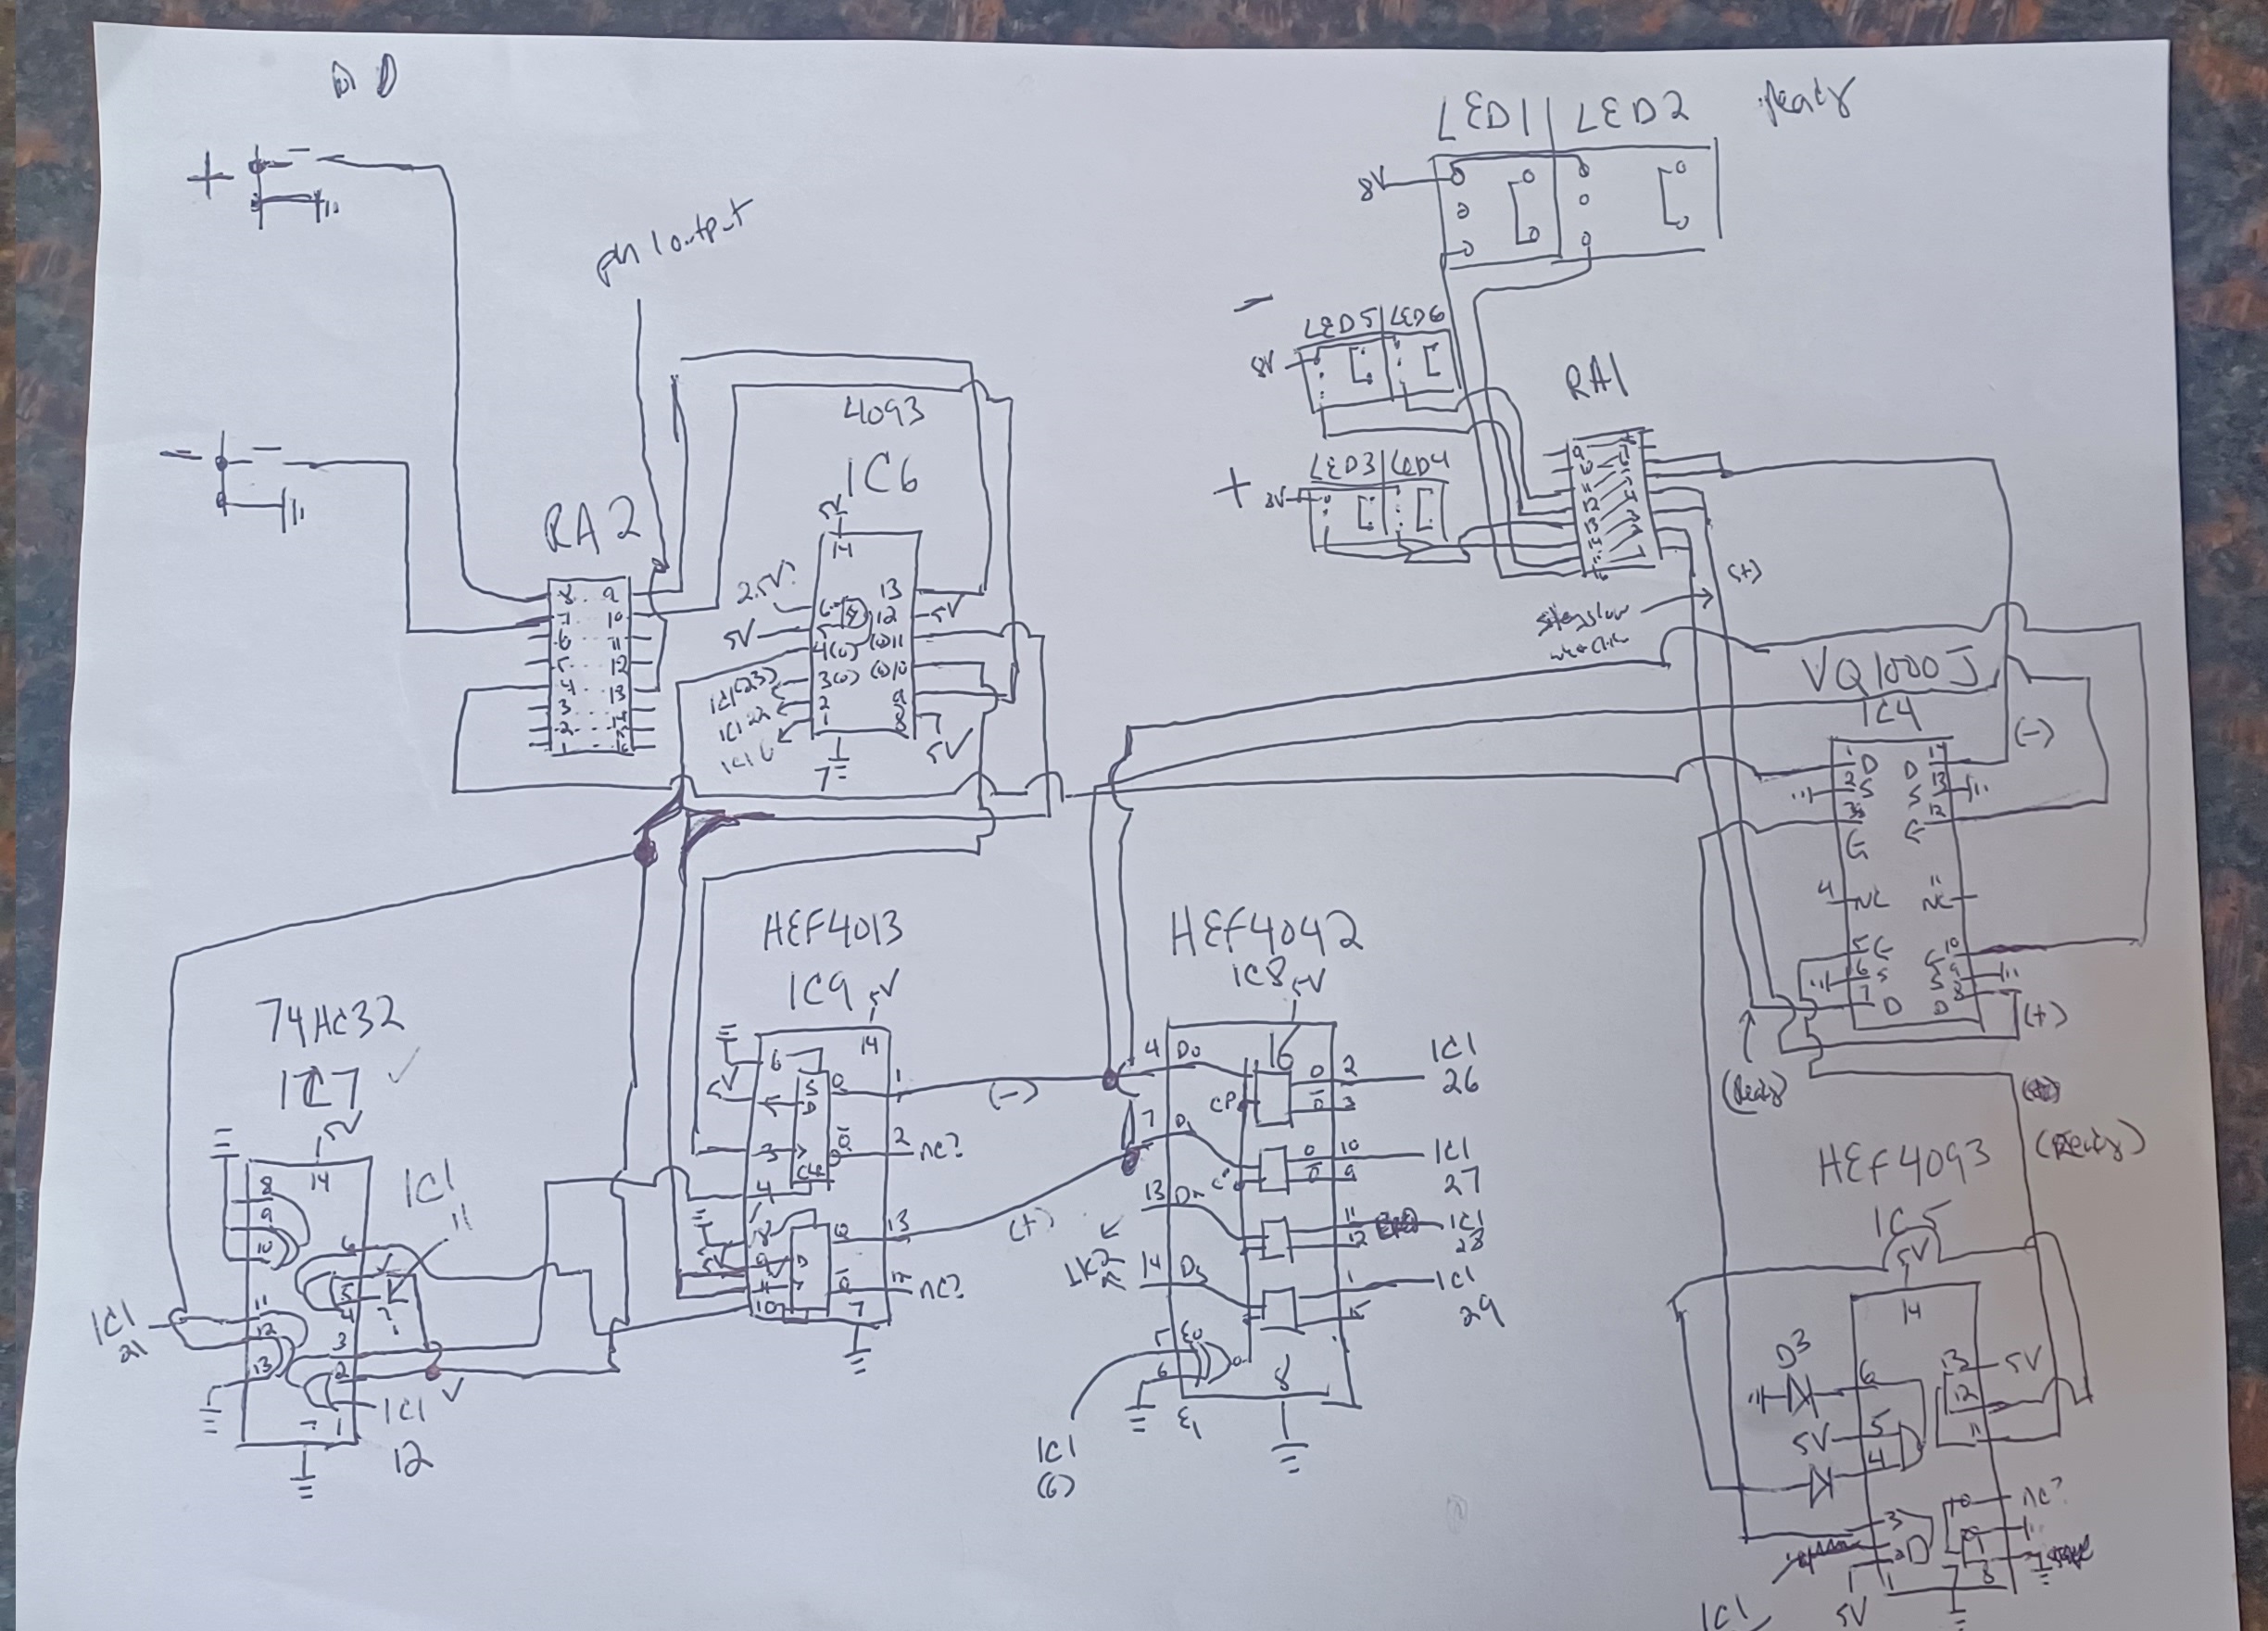 LED1 LED2
Ready
8V
+
-
pin 1 output
LED5 LED6
8V
RA1
4093
IC6
LED3 LED4
+
8V
-
RA2
5V
14
2.5V?
5V
13
12
5V
4(0)
(0)11
3(0)
(0)10
2
9
1
8
IC1(23)
IC1 22
5V
7
8 9
7 10
6 11
5 12
4 13
3
2
1
9
10
11
12
13
14
16
(+)
VQ1000J
IC4
(-)
1 D D 14
2 S S 13
3 12
G G
4 NC NC 11
5 G G 10
6 S S 9
7 D D 8
(+)
(Ready)
(Ready)
HEF4013
IC9
5V
HEF4042
IC8
5V
74HC32
IC7
5V
14
IC1
11
8
9
10
6
5
4
?
11
12
13
3
2
1
7
IC1
21
IC1
12
14
6
5V
S
D
Q
1
(-)
3
Q
2
nc?
4
8
9
5V
D
Q
13
(+)
Q
12
nc?
10
7
16
4 D0
CP
0 2
0 3
IC1
26
7 D1
0 10
0 9
IC1
27
13
11
12
IC1
28
1K2
14 D3
1
15
IC1
29
5 E0
6
E1
8
IC1
(6)
HEF4093
IC5
5V
14
D3
6
5V
5
4
13
5V
12
11
3
2
1
5V
10
nc?
9
8
7
IC1